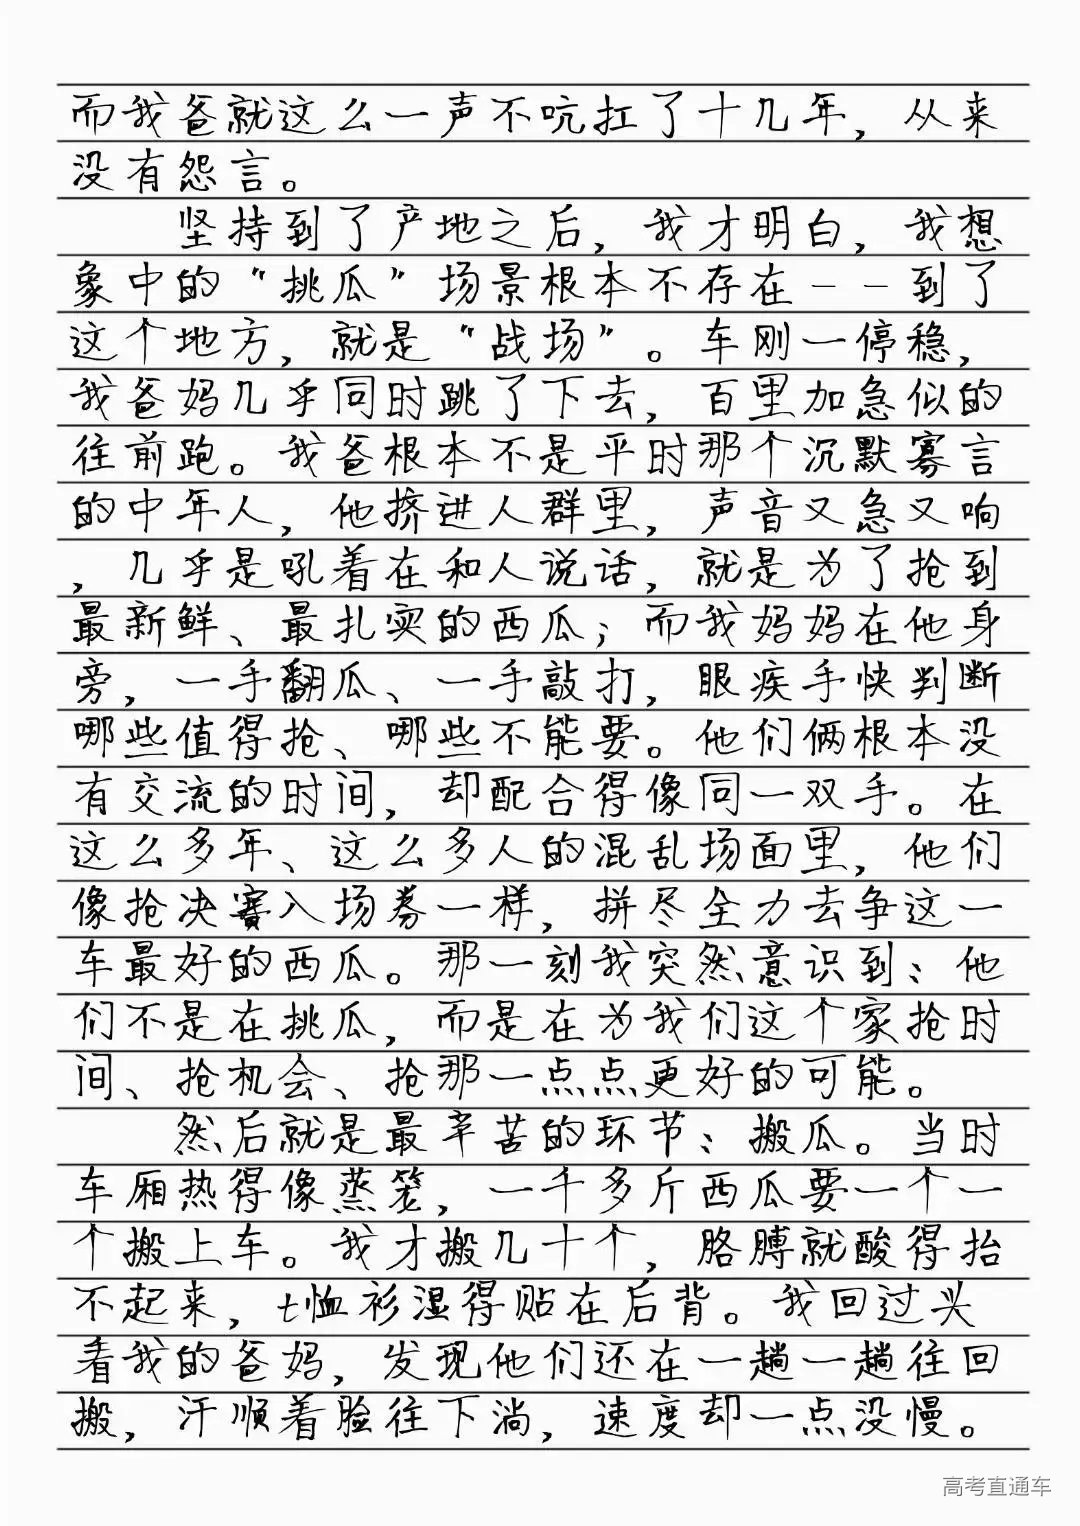 而我爸就这么一声不吭扛了十几年，从来
没有怨言。
坚持到了产地之后，我才明白，我想
象中的“挑瓜”场景根本不存在--到了
这个地方，就是“战场”。车刚一停稳，
我爸妈几乎同时跳了下去，百里加急似的
往前跑。我爸根本不是平时那个沉默寡言
的中年人，他挤进人群里，声音又急又响
，几乎是吼着在和人说话，就是为了抢到
最新鲜、最扎实的西瓜；而我妈妈在他身
旁，一手翻瓜、一手敲打，眼疾手快判断
哪些值得抢、哪些不能要。他们俩根本没
有交流的时间，却配合得像同一双手。在
这么多年、这么多人的混乱场面里，他们
像抢决赛入场券一样，拼尽全力去争这一
车最好的西瓜。那一刻我突然意识到：他
们不是在挑瓜，而是在为我们这个家抢时
间、抢机会、抢那一点点更好的可能。
然后就是最辛苦的环节：搬瓜。当时
车厢热得像蒸笼，一千多斤西瓜要一个一
个搬上车。我才搬几十个，胳膊就酸得抬
不起来，t恤衫湿得贴在后背。我回过头
看我的爸妈，发现他们还在一趟一趟往回
搬，汗顺着脸往下淌，速度却一点没慢。
高考直通车